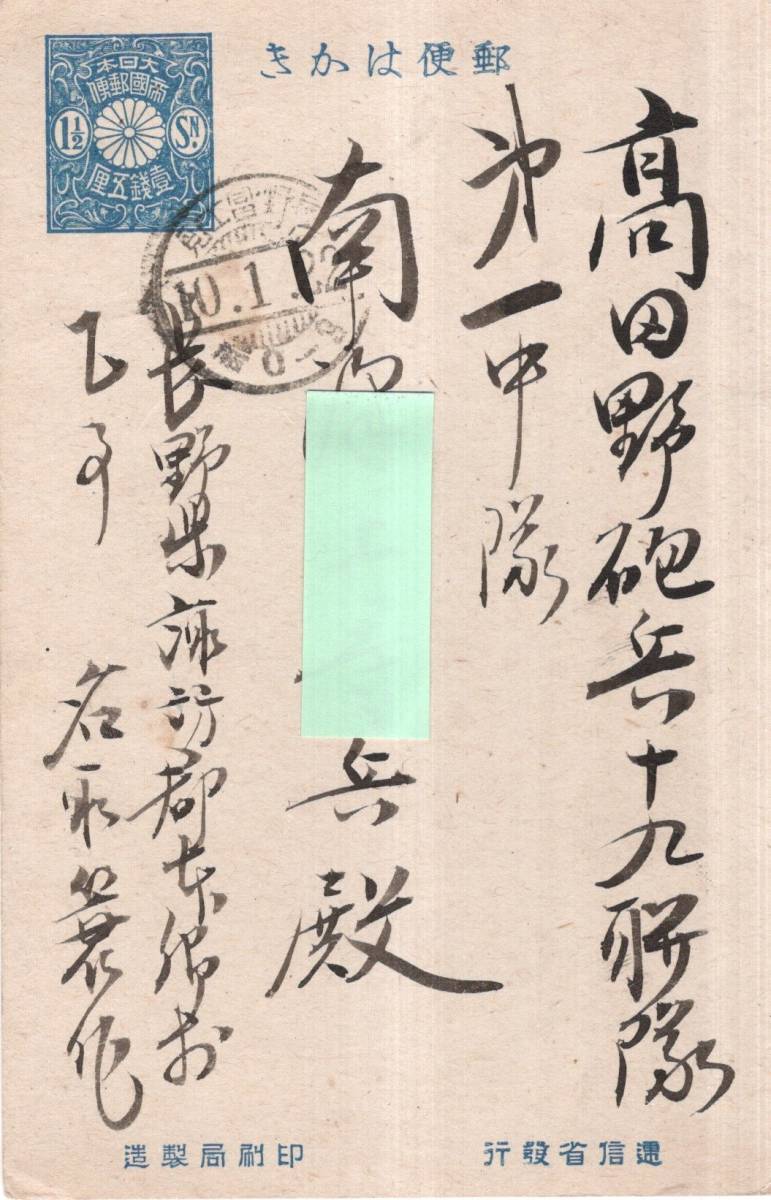 郵便はかき
大日本
帝國郵便
1½ SN.
壹錢五厘
高田野砲兵十九聯隊
第一中隊
南
兵殿
10.1.
長野県諏訪郡本郷村
乙事
名取簑作
遞信省發行
印刷局製造